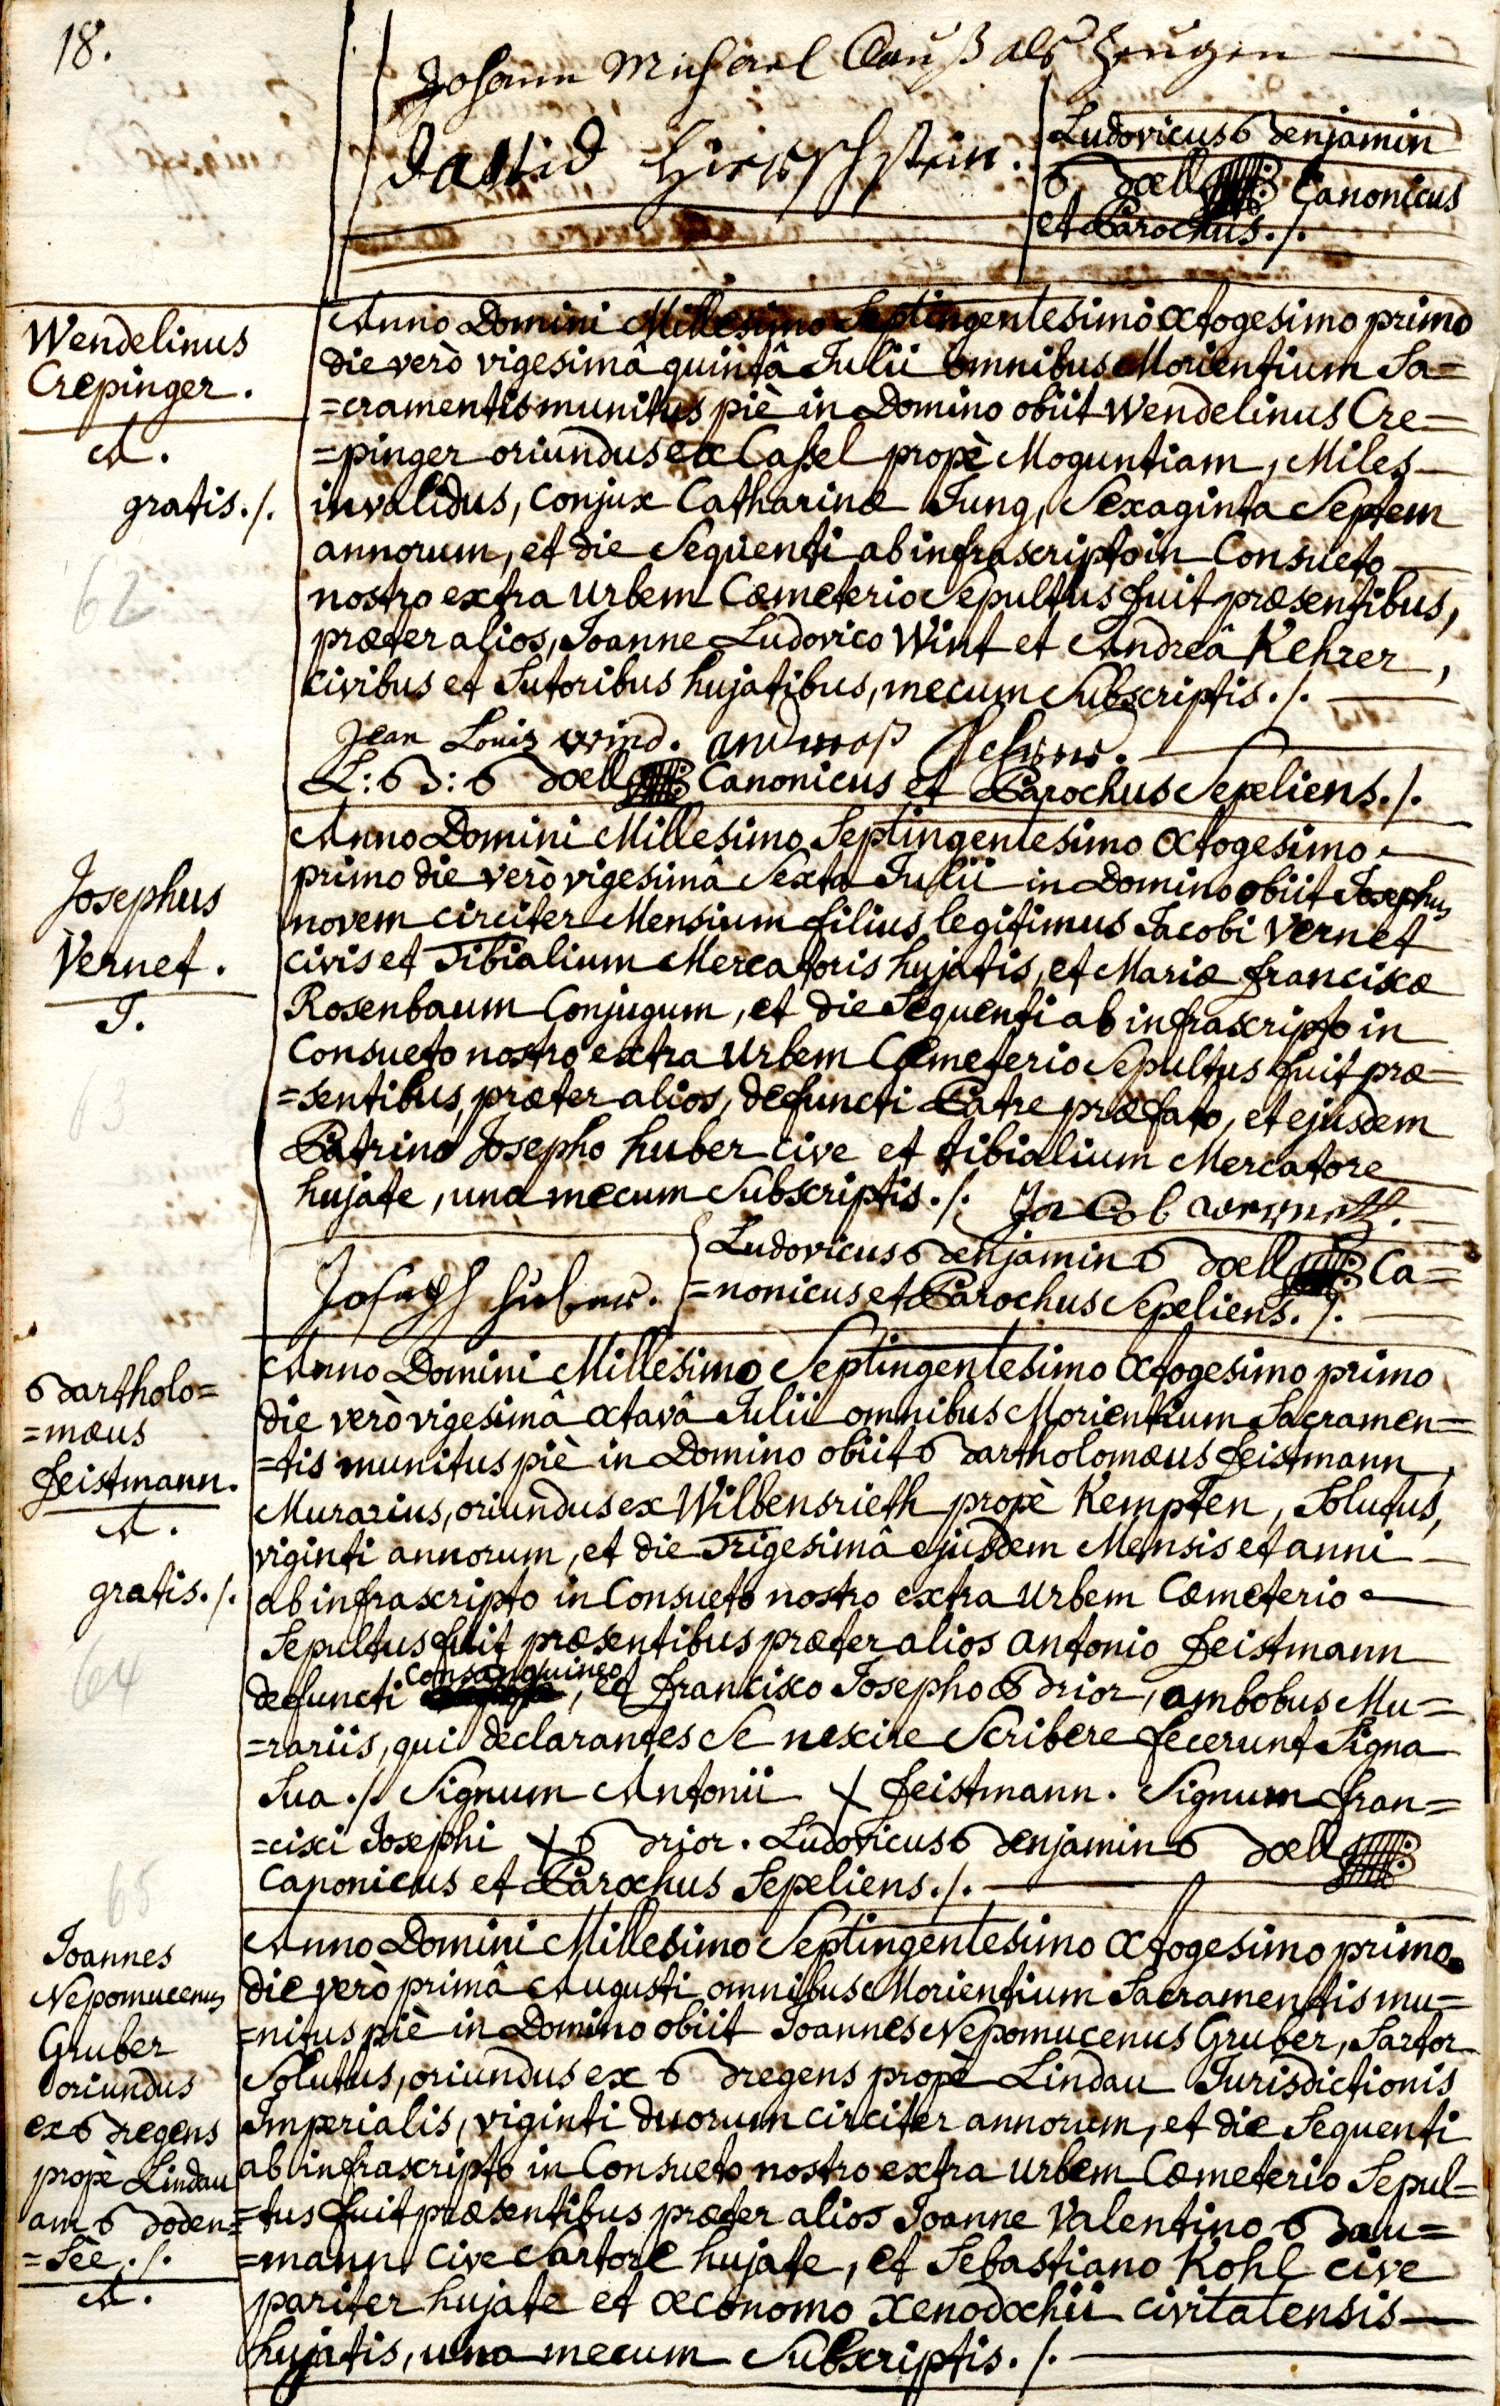 18.
Johann Michael Clauß als Zeugen
David Hierschstein.
Ludovicus Benjamin
Boell Canonicus
et Parochus./.
Wendelinus
Crepinger.
A.
gratis./.
62
Anno Domini Millesimo Septingentesimo Octogesimo primo
die verò vigesimâ quintâ Julii omnibus Morientium Sa=
=cramentis munitus piè in Domino obiit Wendelinus Cre=
=pinger oriundus ex Cassel propè Moguntiam, Miles
invalidus, Conjux Catharinæ Jung, Sexaginta Septem
annorum, et die Sequenti ab infrascripto in Consueto
nostro extra Urbem Cæmeterio Sepultus fuit præsentibus,
præter alios, Joanne Ludovico Wint et Andreâ Kehrer,
civibus et Sutoribus hujatibus, mecum Subscriptis./.
Jean Louis wind. andreas Kehrer.
L: B: Boell Canonicus et Parochus Sepeliens./.
Josephus
Vernet.
J.
63
Anno Domini Millesimo Septingentesimo Octogesimo
primo die verò vigesimâ Sexta Julii in Domino obiit Josephus
novem circiter Mensium filius legitimus Jacobi Vernet
civis et Tibialium Mercatoris hujatis, et Mariæ franciscæ
Rosenbaum Conjugum, et die Sequenti ab infrascripto in
Consueto nostro extra Urbem Cæmeterio Sepultus fuit præ=
=sentibus, præter alios, defuncti Patre præfato, et ejusdem
Patrino Josepho huber cive et tibialium Mercatore
hujate, una mecum Subscriptis./. Jacob wernett.
Joseph Huber.
Ludovicus Benjamin Boell Ca=
=nonicus et Parochus Sepeliens./.
Bartholo=
=mæus
feistmann.
A.
gratis./.
64
Anno Domini Millesimo Septingentesimo Octogesimo primo
die verò vigesimâ octavâ Julii omnibus Morientium Sacramen=
=tis munitus piè in Domino obiit Bartholomæus feistmann,
Murarius, oriundus ex Wilbensrieth propè Kempten, Solutus,
viginti annorum, et die Trigesimâ ejusdem Mensis et anni
ab infrascripto in Consueto nostro extra Urbem Cæmeterio
Sepultus fuit præsentibus præter alios Antonio feistmann
defuncti Consanguineo, et francisco Josepho Brior, ambobus Mu=
=rariis, qui declarantes Se nescire Scribere fecerunt Signa
Sua./. Signum Antonii X feistmann. Signum fran=
=cisci Josephi X Brior. Ludovicus Benjamin Boell
Canonicus et Parochus Sepeliens./.
65
Joannes
Nepomucenus
Gruber
oriundus
ex Bregens
propè Lindau
am Boden=
=Sèe./.
A.
Anno Domini Millesimo Septingentesimo Octogesimo primo
die verò primâ Augusti omnibus Morientium Sacramentis mu=
=nitus piè in Domino obiit Joannes Nepomucenus Gruber, Sartor
Solutus, oriundus ex Bregens propè Lindau Jurisdictionis
Imperialis, viginti duorum circiter annorum, et die Sequenti
ab infrascripto in Consueto nostro extra Urbem Cæmeterio Sepul=
=tus fuit præsentibus præter alios Joanne Valentino Bau=
=mann cive Sartore hujate, et Sebastiano Kohl cive
pariter hujate et œconomo Xenodochii civitatensis
hujatis, una mecum Subscriptis./.